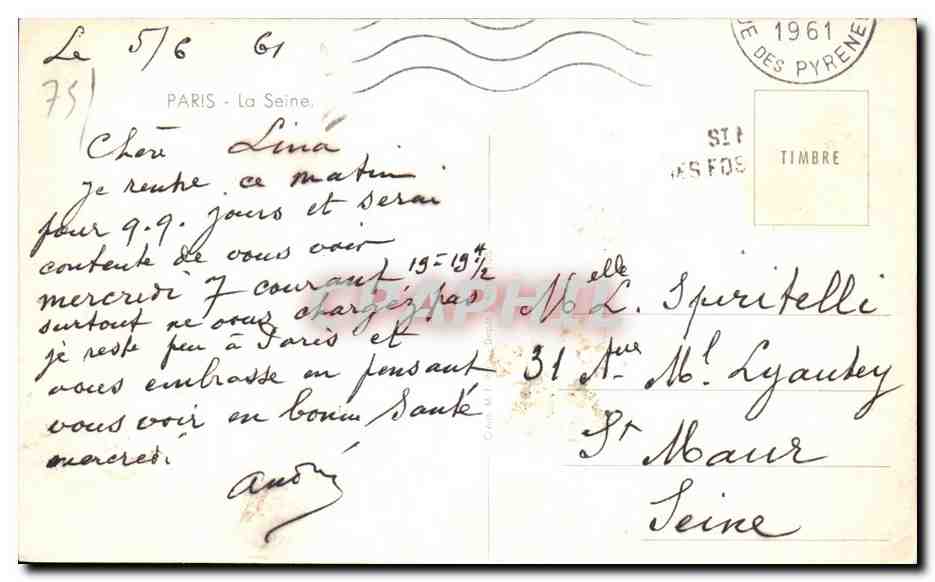 Le 5/6 61
1961
UE DES PYRENE
75
PARIS - La Seine.
Chère Lina
Je rentre ce matin
pour 9.9. jours et serai
contente de vous voir
mercredi 7 courant 19-19H½
surtout ne vous chargez pas
je reste peu à Paris et
vous embrasse en pensant
vous voir en bonne santé
mercredi
André
ST
ES FOS
TIMBRE
CPAPHIL
Melle L. Spiritelli
31 Ave Ml Lyautey
St Maur
Seine